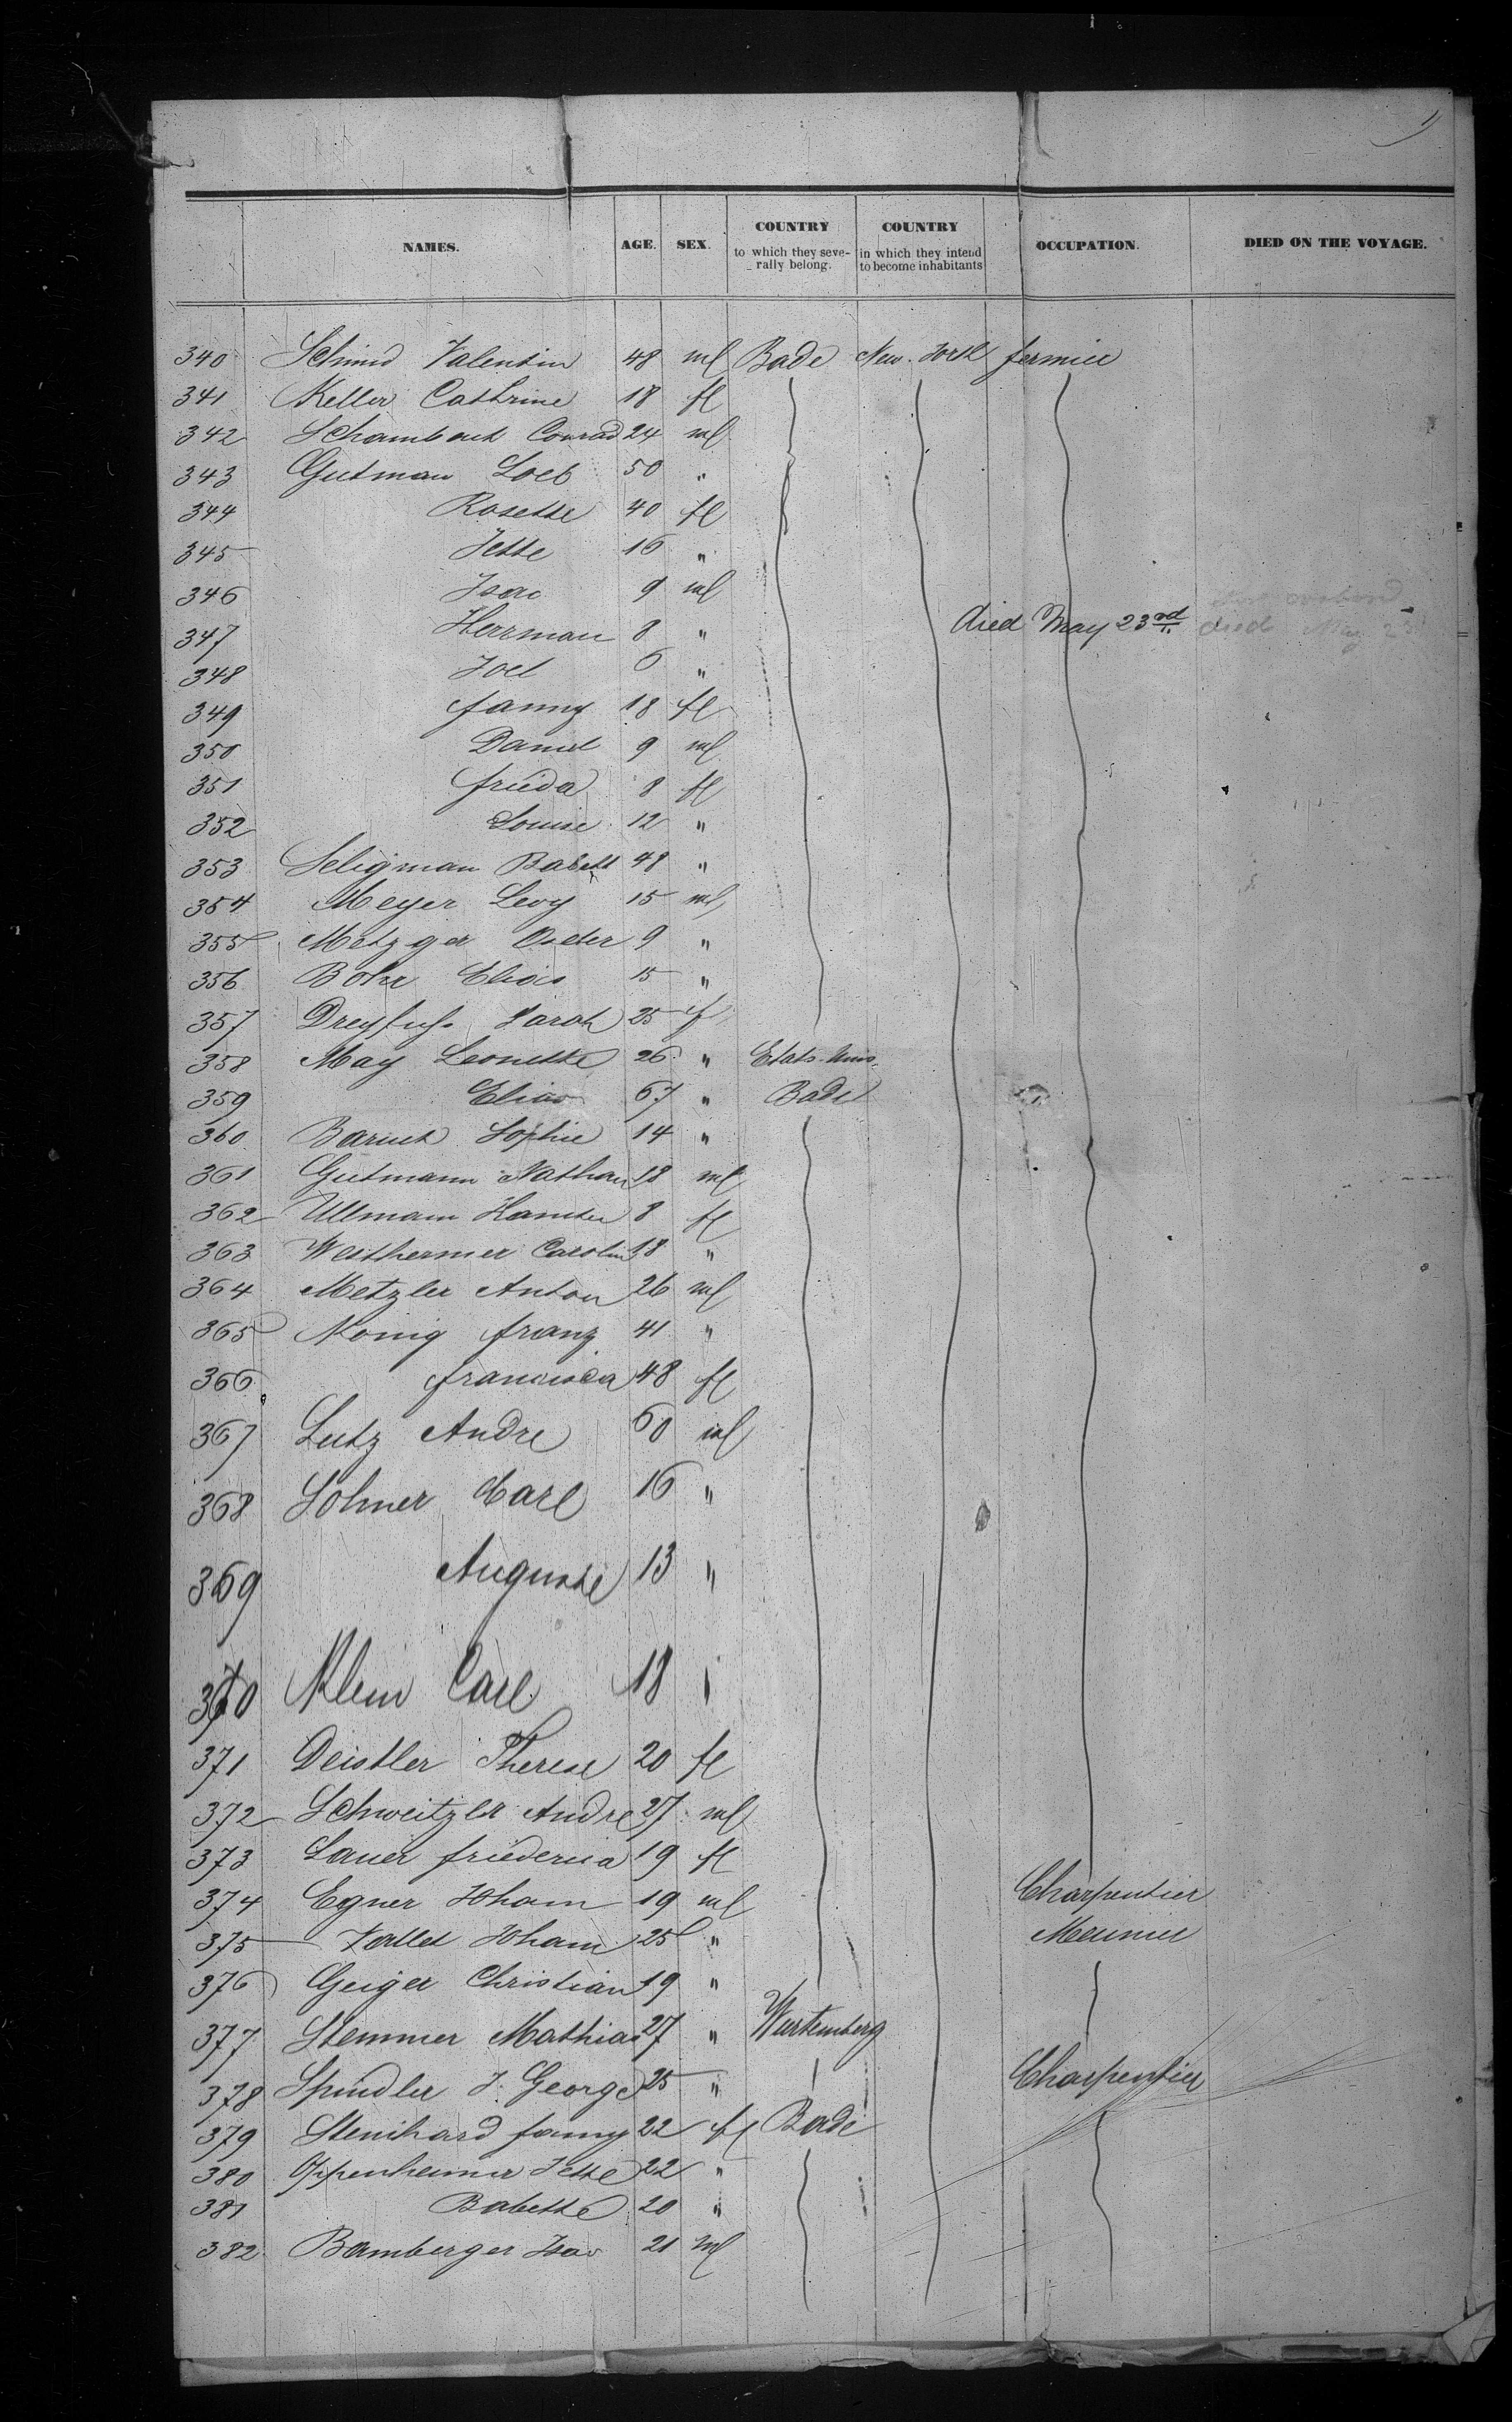 NAMES. AGE. SEX. COUNTRY to which they severally belong. COUNTRY in which they intend to become inhabitants OCCUPATION. DIED ON THE VOYAGE.
340 Schmid Valentin 48 ml Bade New-York fermier
341 Keller Cathrine 18 fl
342 Conrad 24 ml
343 Gutman Loeb 50 "
344 Rosette 40 fl
345 Jette 16 "
346 Isac 9 ml
347 Herrman 8 " died May 23rd died May 23
348 Joel 6 "
349 fanny 18 fl
350 Daniel 9 ml
351 frieda 8 fl
352 Louise 12 "
353 Seligman Babett 48 "
354 Meyer Levy 15 ml
355 Metzger 9 "
356 Bohr Elias 15 "
357 Dreyfuss Sarah 25 f
358 May Leonette 26 " Etats-Unis.
359 Elias 67 " Bade
360 Baruch Sophie 14 "
361 Gutmann Nathan 18 ml
362 Ullmann 8 fl
363 Carolin 18 "
364 Metzler Anton 26 ml
365 Konig franz 41 "
366 francisca 48 fl
367 Lutz Andre 60 ml
368 Solmer Carl 16 "
369 Auguste 13 "
370 Klein Carl 18 "
371 Deistler Therese 20 fl
372 Schweitzer Andre 27 ml
373 Lauer friederica 19 fl
374 Egner Joham 19 ml Charpentier
375 Joham 25 " Meunier
376 Geiger Christian 19 "
377 Stemmer Mathias 27 " Wurtemberg
378 Spindler J. George 25 " Charpentier
379 Steinhard fanny 22 fl Bade
380 Oppenheimer Jette 22 "
381 Babette 20 "
382 Bamberger Isac 21 ml